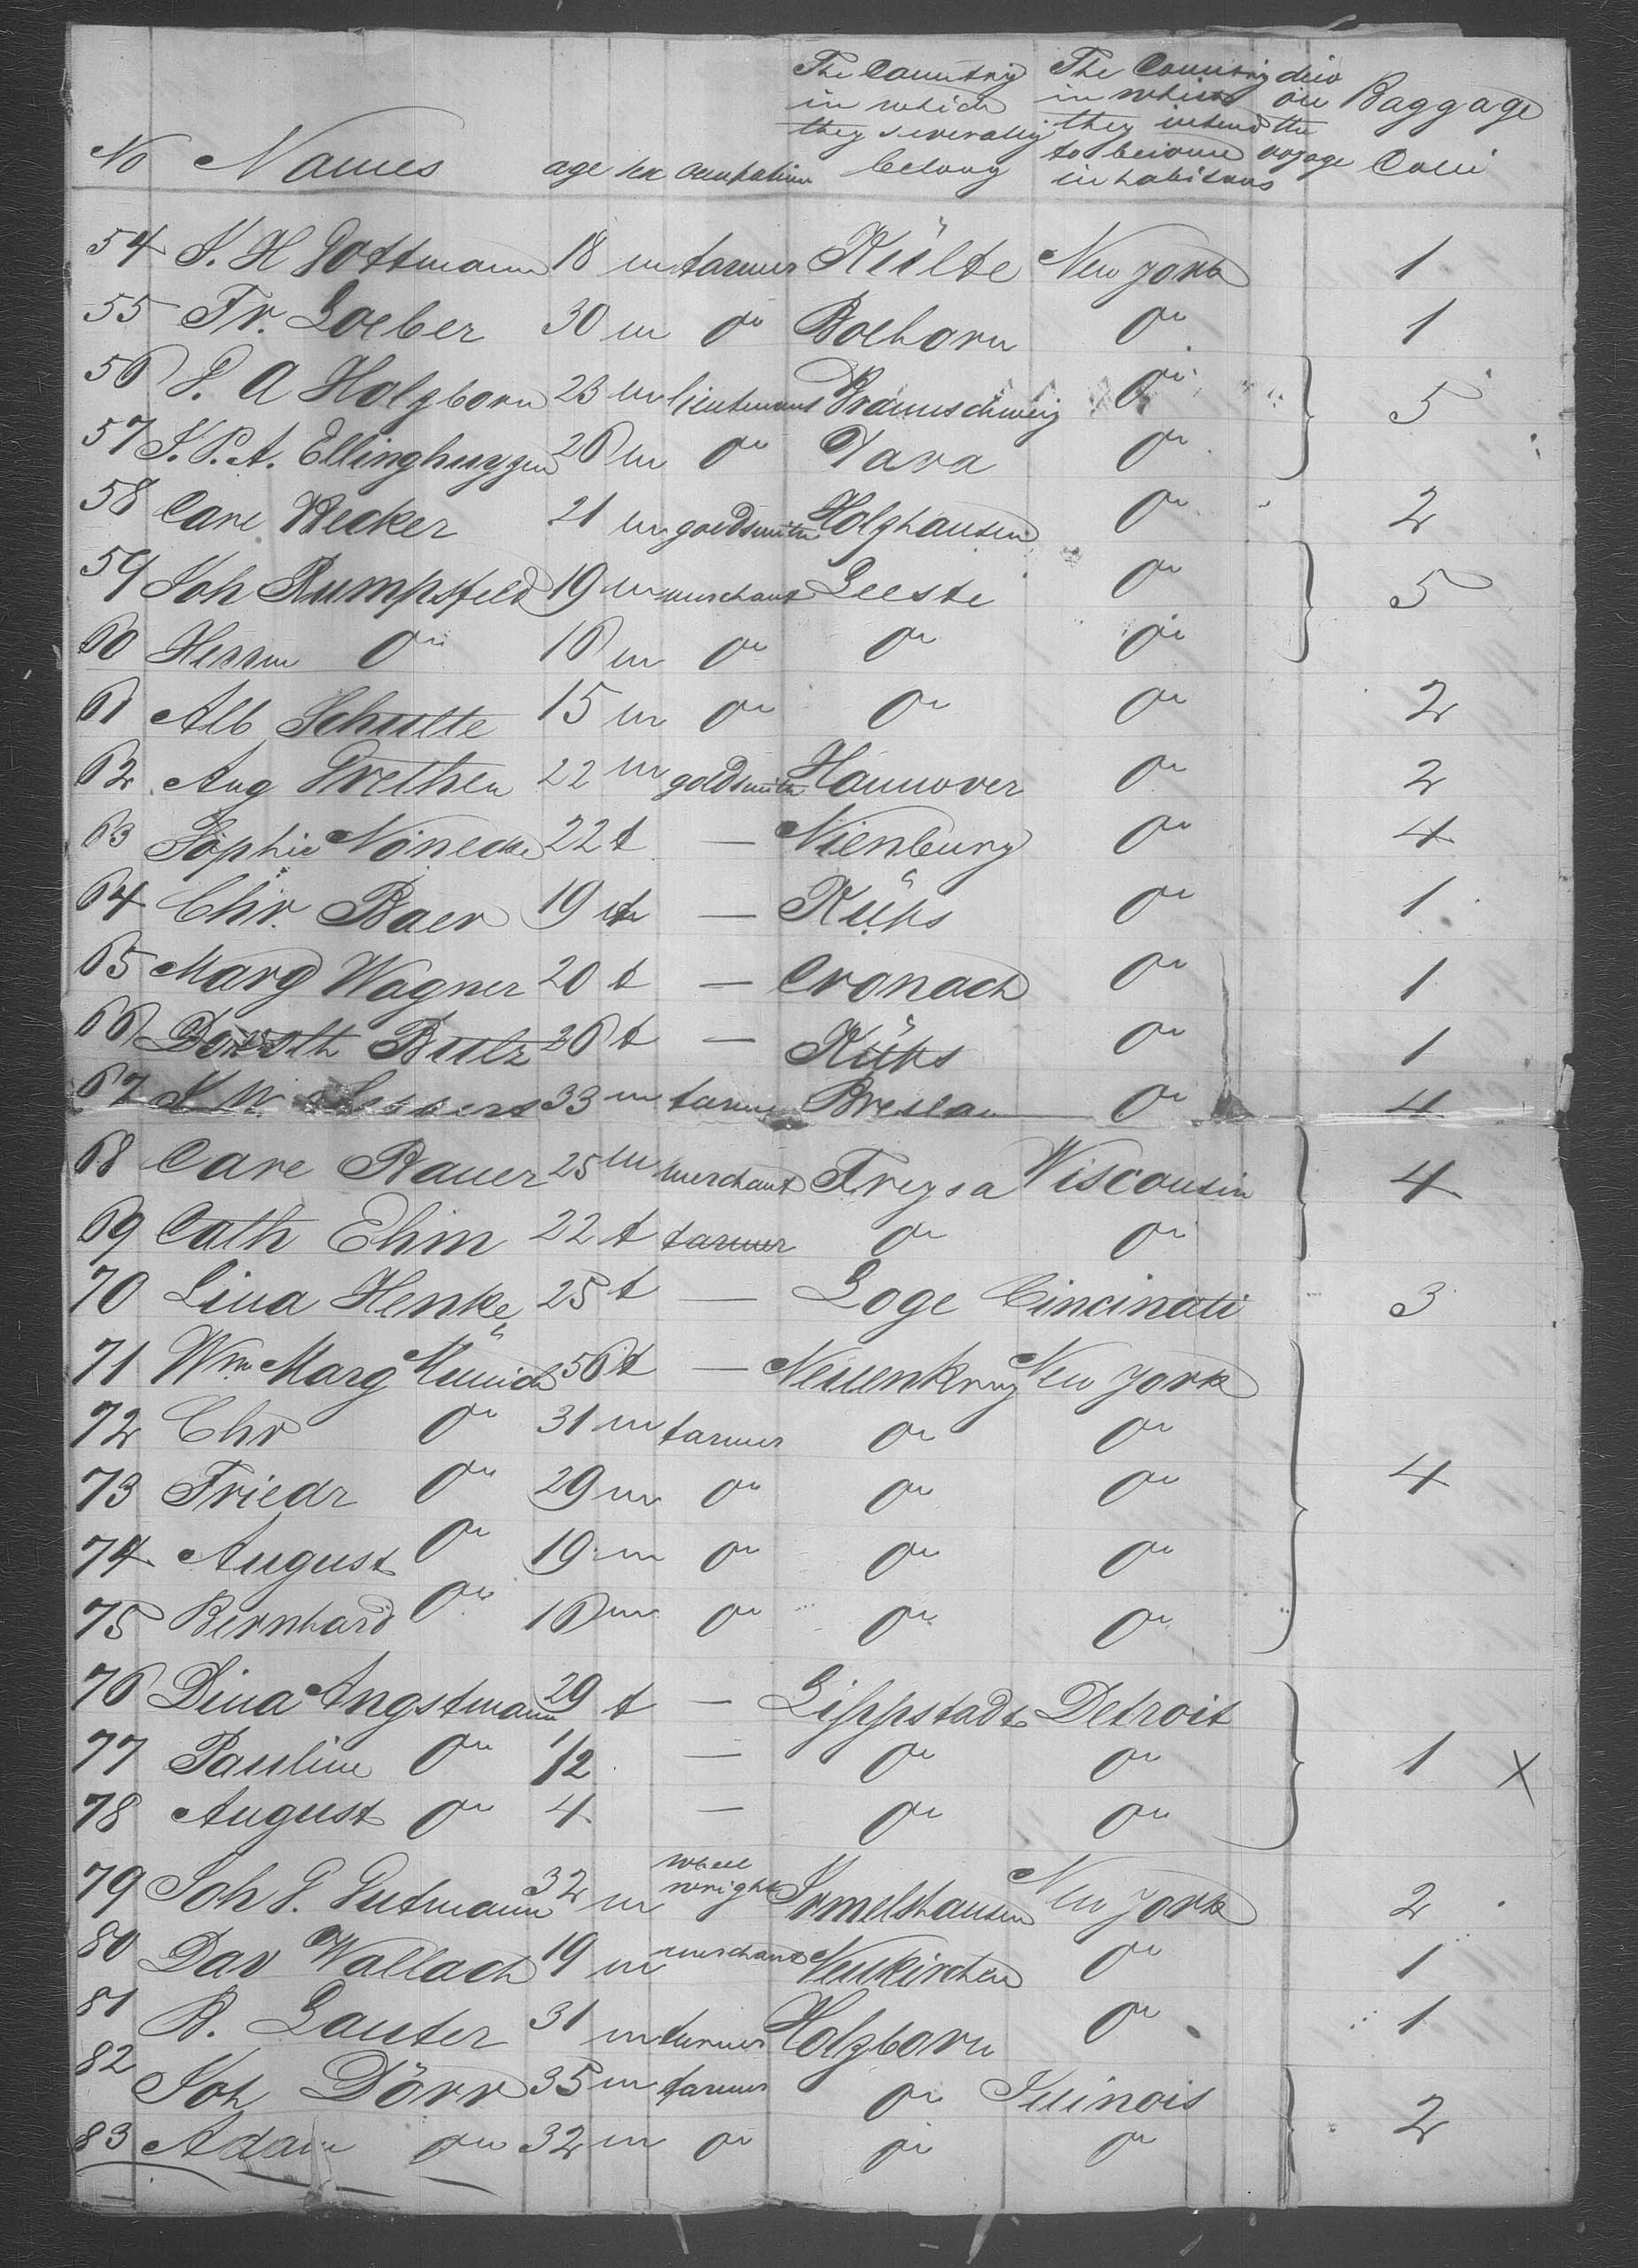 No Names age sex occupation The Country in which they severally belong The Country in which they intend to become inhabitans died on the voyage Baggage Colli
54 J. H Gottmann 18 m farmer Külte New York 1
55 Fr. Loeber 30 m do do 1
56 L. A Holzborn 23 m lieutenant Braunschweig do 5
57 J. P. A. 26 m do Java do
58 Carl Becker 21 m goldsmith Holzhausen do 2
59 Joh Rumpsfeld 19 m merchant Leeste do 5
60 Herm do 16 m do do do
61 Alb Schulte 15 m do do do 2
62 Aug Grethen 22 m goldsmith Hannover do 2
63 Sophie 22 f — Nienburg do 4
64 Chr. Baer 19 f — Küps do 1
65 Marg Wagner 20 f — Cronach do 1
66 Doroth Bulz 26 f — Küps do 1
67 J W 33 m farmer Breslau do 4
68 Carl Bauer 25 m merchant Treysa Wisconsin 4
69 Cath Ehim 22 f farmer do do
70 Lina Henke 25 f — Loge Cincinati 3
71 Wm Marg Münich 56 f — Neuenkrug New York 4
72 Chr do 31 m farmer do do
73 Friedr do 29 m do do do
74 August do 19 m do do do
75 Bernhard do 16 m do do do
76 Dina Angstmann 29 f — Lippstadt Detroit 1 X
77 Pauline do 1/2 — do do
78 August do 4 — do do
79 Joh G. Gutmann 32 m wheel wright Irmelshausen New York 2
80 Dav Wallach 19 m merchant Neukirchen do 1
81 B. Lauter 31 m Holzborn do 1
82 Joh Dörr 35 m farmer do Illinois 2
83 Adam do 32 m do do do